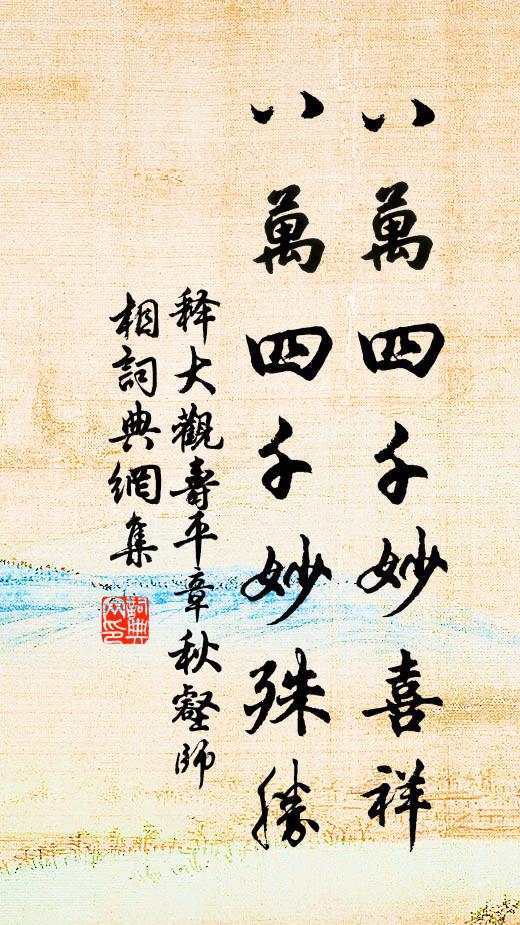 八萬四千妙喜祥
八萬四千妙殊勝
释大觀壽平章秋壑師
相詞典網集